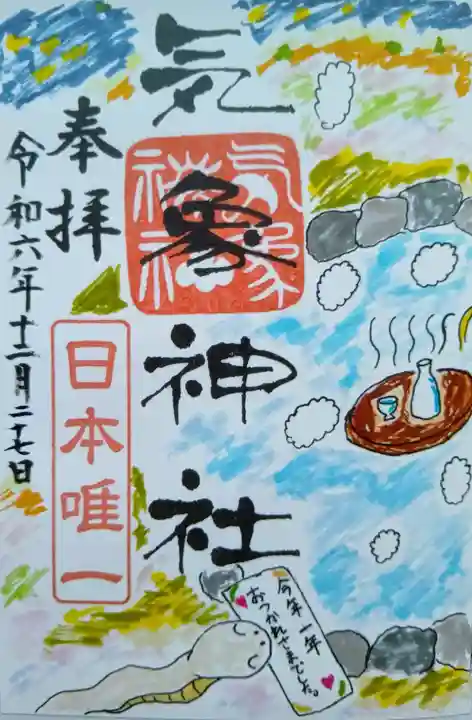 気象神社
気象
神社
奉拝
令和六年十二月二十七日
日本唯一
今年一年
おつかれさまでした。